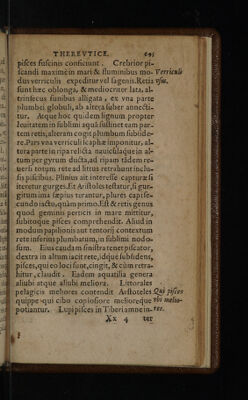 THEREVTICE. 695
pisces fuscinis conficiunt. Crebrior pi-
scandi maximè in mari & fluminibus mo- Verriculi
dus verriculis expeditur vel sagenis. Retia usus.
sunt hæc oblonga, & mediocriter lata, al-
trinsecus funibus alligata, ex vna parte
plumbei globuli, ab altera suber annecti-
tur. Atque hoc quidem lignum propter
leuitatem in sublimi aqua sustinet eam par-
tem retis, alteram cogit plumbum subside-
re. Pars vna verriculi scaphæ imponitur, al-
tera parte in ripa relicta nauiculáque in al-
tum per gyrum ducta, ad ripam tādem re-
uersi totum rete ad littus retrahunt inclu-
sis piscibus. Plinius ait interesse capturæ si
iteretur gurges. Et Aristoteles testatur, si gur-
gitum ima sæpius terantur, plures capesse-
cundo iactu, quàm primo. Est & retis genus
quod geminis perticis in mare mittitur,
subitoque pisces comprehendit. Aliud in
modum papilionis aut tentorij contextum
rete inferius plumbatum, in sublimi nodo-
sum. Eius caudam sinistra tenet piscator,
dextra in altum iacit rete, idque subsidens,
pisces, qui eo loci sunt, cingit, & cùm retra-
hitur, claudit. Eadem aquatilia genera
aliubi atque aliubi meliora. Littorales
pelagicis meliores contendit Aristoteles Qui pisces
quippe qui cibo copiosiore melioreque ubi melio-
potiantur. Lupi pisces in Tiberi amne in- res.
Xx 4 ter